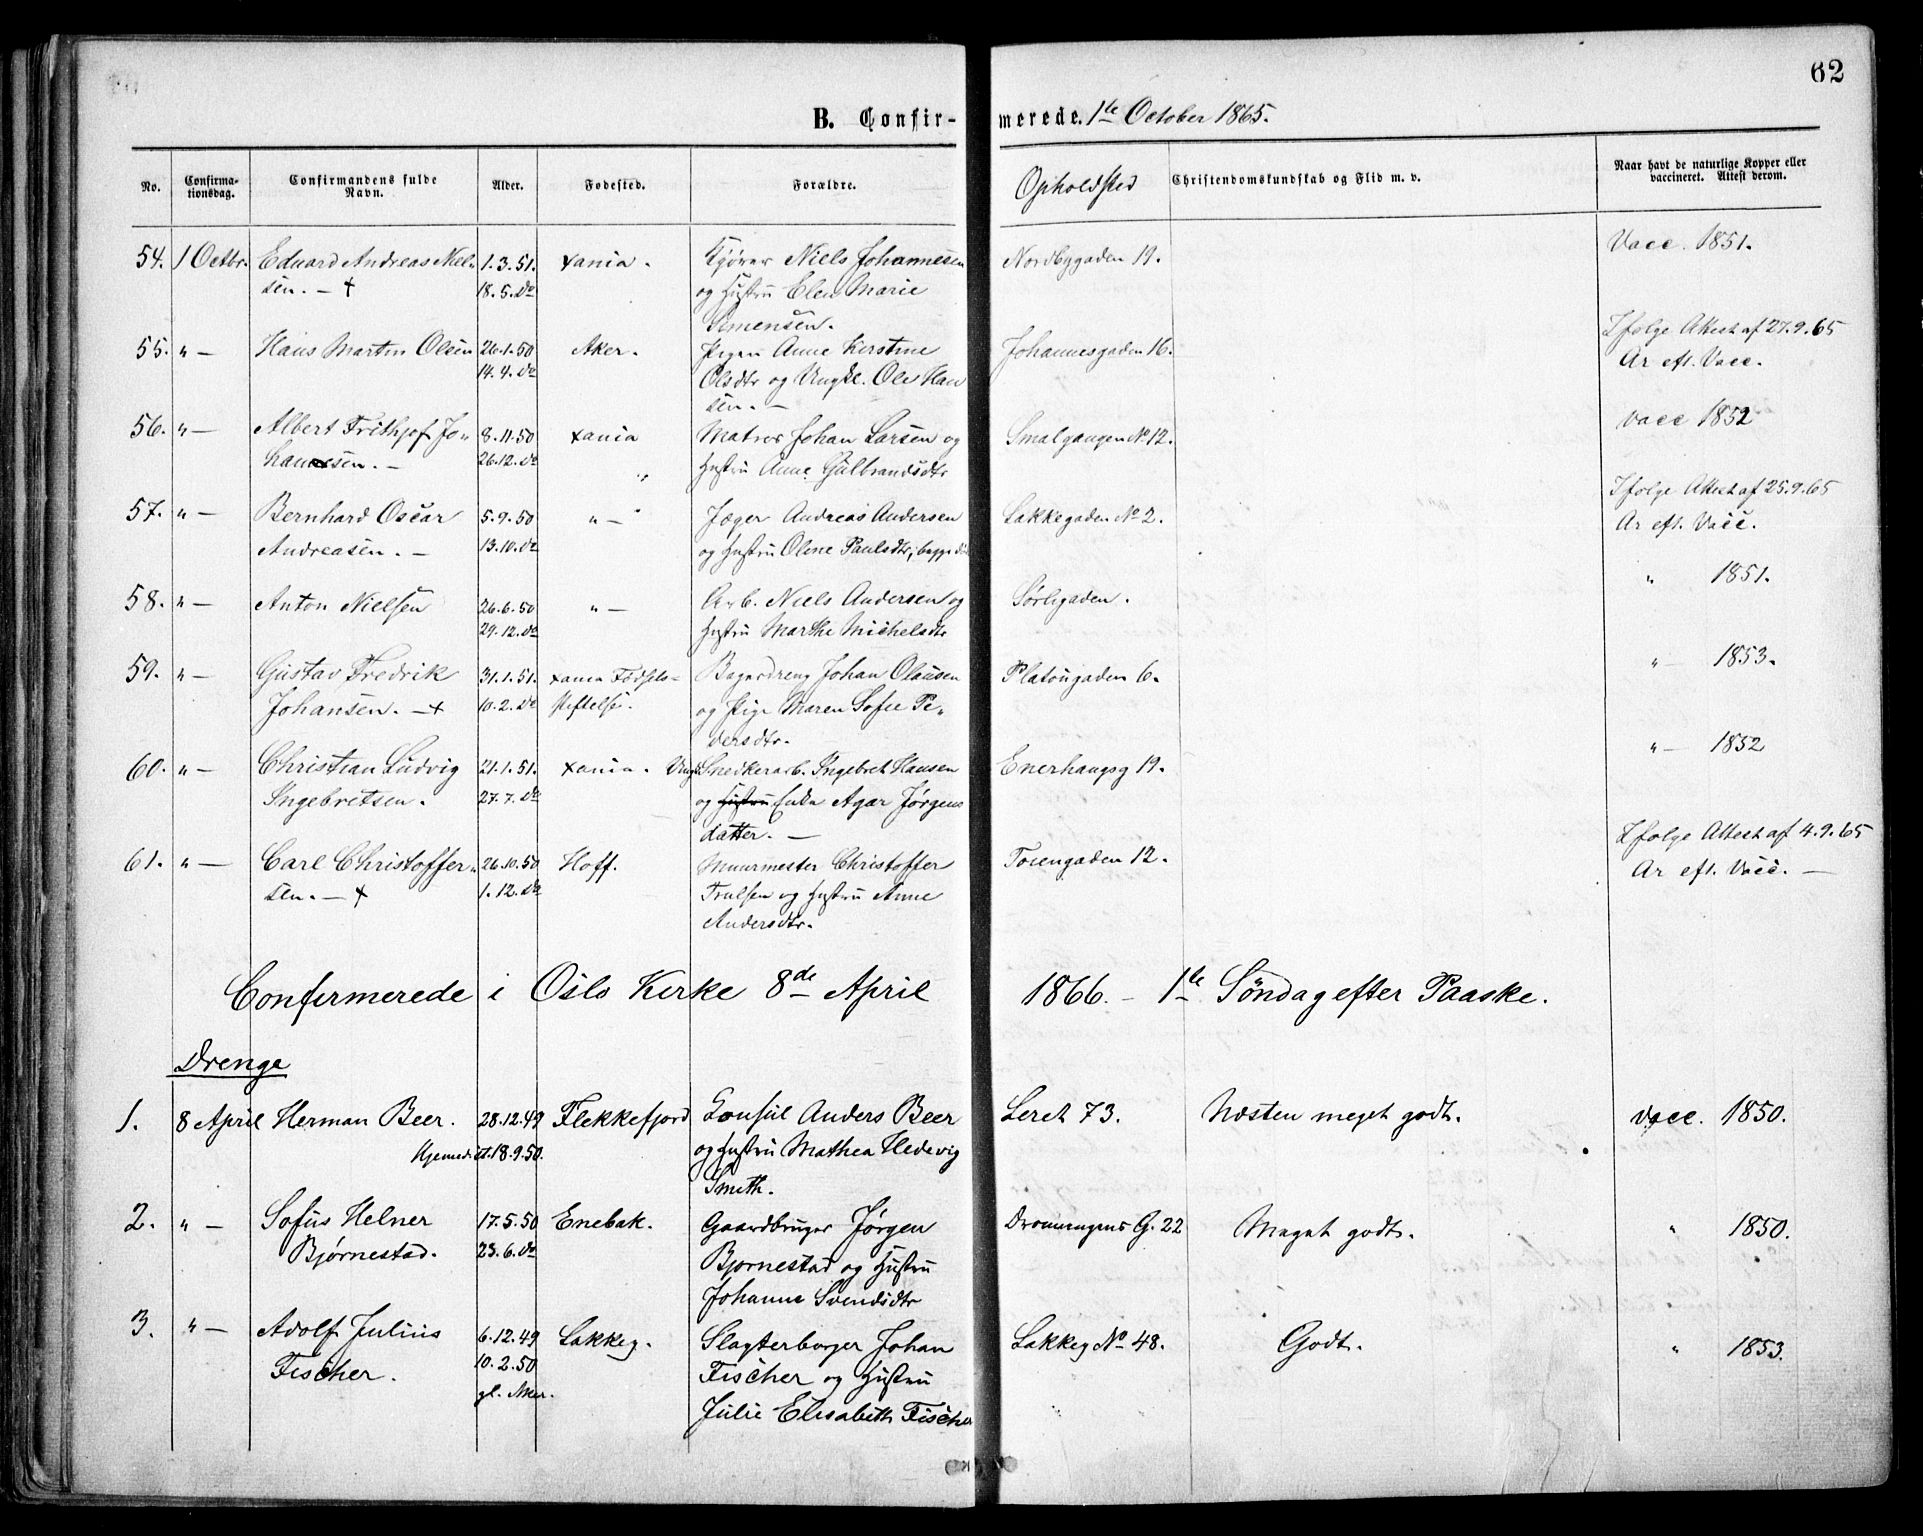 62
B. Confirmerede. 1ste October 1865.
No. Confirmationsdag. Confirmandens fulde Navn. Alder. Fødested. Forældre. Opholdsted Christendomskundskab og Flid m. v. Naar havt de naturlige Kopper eller vaccineret. Attest derom.
54. 1 Octbr. Eduard Andreas Niel- 1.3.51. Xania. Niels Johannesen Nordbygaden 19. Vacc. 1851.
sen. — + 18.5. do og Hustru Elen Marie
Simensen.
55. " — Hans Martin Olsen 26.1.50 Aker. Pigen Anne Kerstine Johannesgaden 16. Ifølge Attest af 27.9.65
14.4. do Olsdtr og Ungkl. Ole Han Ar eft. Vacc.
sen. —
56. " — Albert Frithjof Jo- 8.11.50 Xania Matros Johan Larsen og Smalgangen No 12. vacc 1852
hansen. — 26.12. do Hustru Anne Gulbrandsdtr
57. " — Bernhard Oscar 5.9.50 " — Jæger Andreas Andersen Lakkegaden No 2. Ifølge Attest af 25.9.65
Andreasen. — 13.10. do og Hustru Olene Paulsdtr, begge Ar eft. Vacc.
58. " — Anton Nielsen 26.6.50 " — Arb. Niels Andersen og Sørligaden. " 1851.
29.12. do Hustru Marthe Michelsdtr
59. " — Gustav Fredrik 31.1.51. Xania Fødsels- Bagerdreng Johan Olausen Platougaden 6. " — 1853.
Johansen. — + 10.2. do stiftelse. og Pige Maren Sofie Pe-
dersdtr.
60. " — Christian Ludvig 21.1.51. Xania. Ungk Snedkerarb. Ingebret Hansen Enerhaugsg 19. " — 1852
Ingebretsen. 27.7. do og Hustru Enke Agar Jørgens
datter. —
61. " — Carl Christoffer- 26.10.50 Hoff. Muurmester Christoffer Toiengaden 12. Ifølge Attest af 4.9.65
sen. — + 1.12. do Trulsen og Hustru Anne Ar eft. Vacc. —
Andersdtr.
Confirmerede i Oslo Kirke 8de April 1866. – 1ste Søndag efter Paaske.
Drenge
1. 8 April Herman Beer. 28.12.49 Flekkefjord Konsul Anders Beer Leret 73. Næsten meget godt. vacc. 1850.
Hjemmedøbt 18.9.50. og Hustru Mathea Hedevig
Smith.
2. " — Sofus Helner 17.5.50 Enebak. Gaardbruger Jørgen Dronningens G. 22 Meget godt. " 1850.
Bjørnestad. 23.6. do Bjornestad og Hustru
Johanne Svendsdtr
3. " — Adolf Julius 6.12.49 Lakkeg. Slagterborger Johan Lakkeg No 48. Godt. " 1853.
Fischer. 10.2.50 Fischer og Hustru
gl. Aker. Julie Elisabeth Fischer